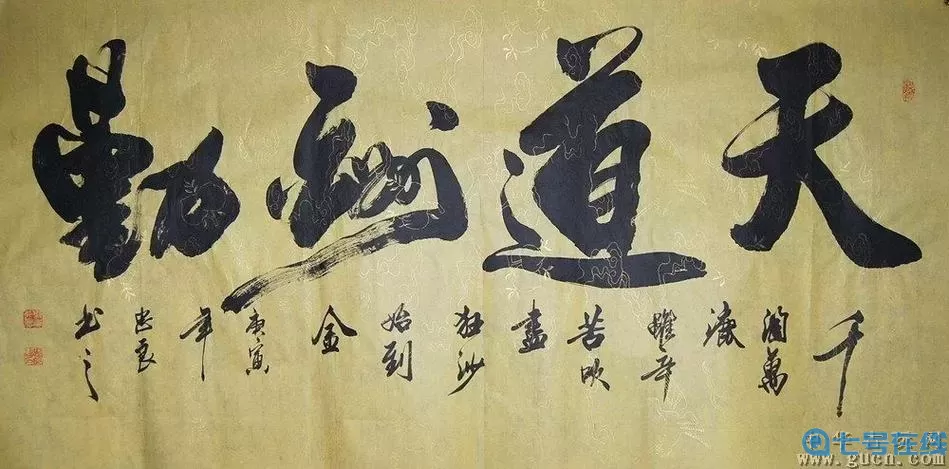 天道酬勤
千
淘萬
漉
雖辛
苦吹
盡
狂沙
始到
金
庚寅
年
书之
七号在线
www.gucn.com